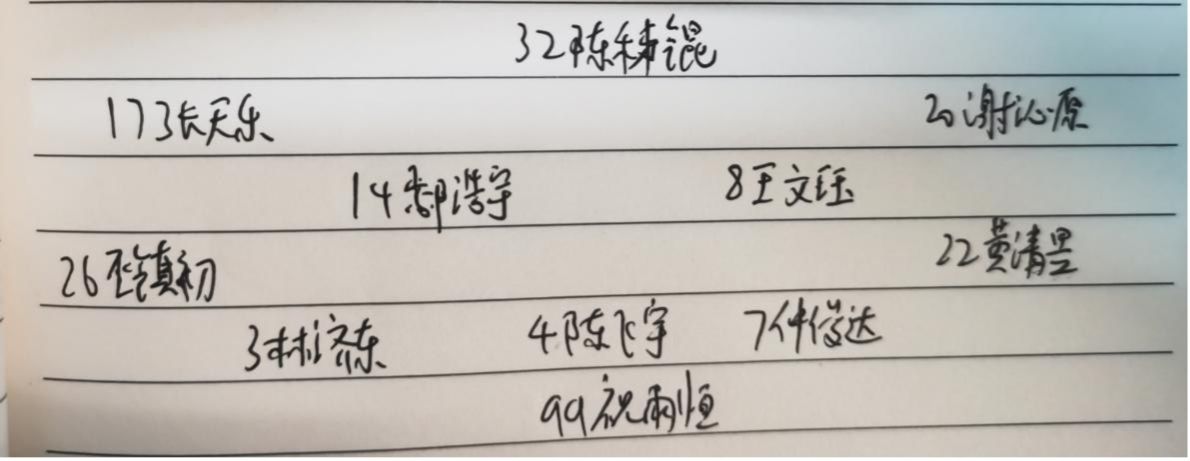 32陈秣锟
17张天乐 20谢沁原
14郝浩宇 8王文珏
26丕镇初 22黄清昱
3林济东 4陈飞宇 7仲俊达
99祝雨恒